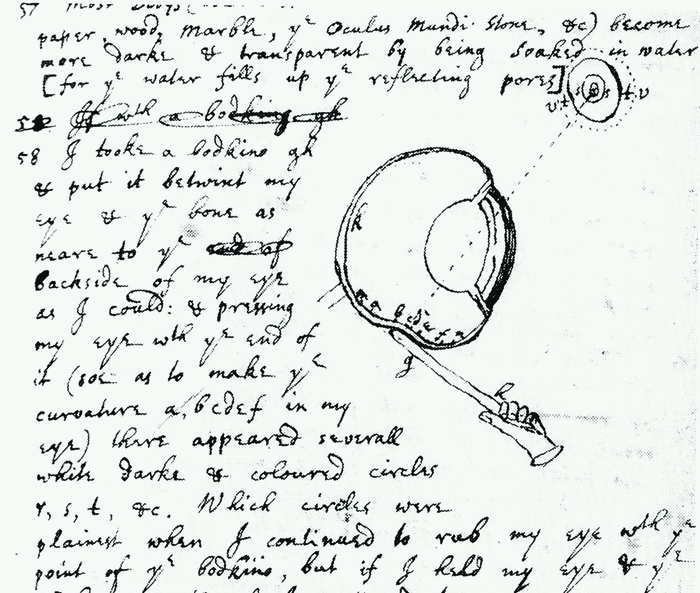 57
paper, wood, marble, yᵉ Oculus Mundi Stone, &c) become
more darke & transparent by being Soaked in water
[for yᵉ water fills up yᵉ reflecting pores]
58 If wth a bodkine gh
58 I tooke a bodkine gh
& put it betwixt my
eye & yᵉ bone as
neare to yᵉ end of
backside of my eye
as I could: & pressing
my eye wth yᵉ end of
it (soe as to make yᵉ
curvature a, bcdef in my
eye) there appeared severall
white darke & coloured circles
r, s, t, &c. Which circles were
plainest when I continued to rub my eye wth yᵉ
point of yᵉ bodkine, but if I held my eye & yᵉ
v t s s t v
k
g
h